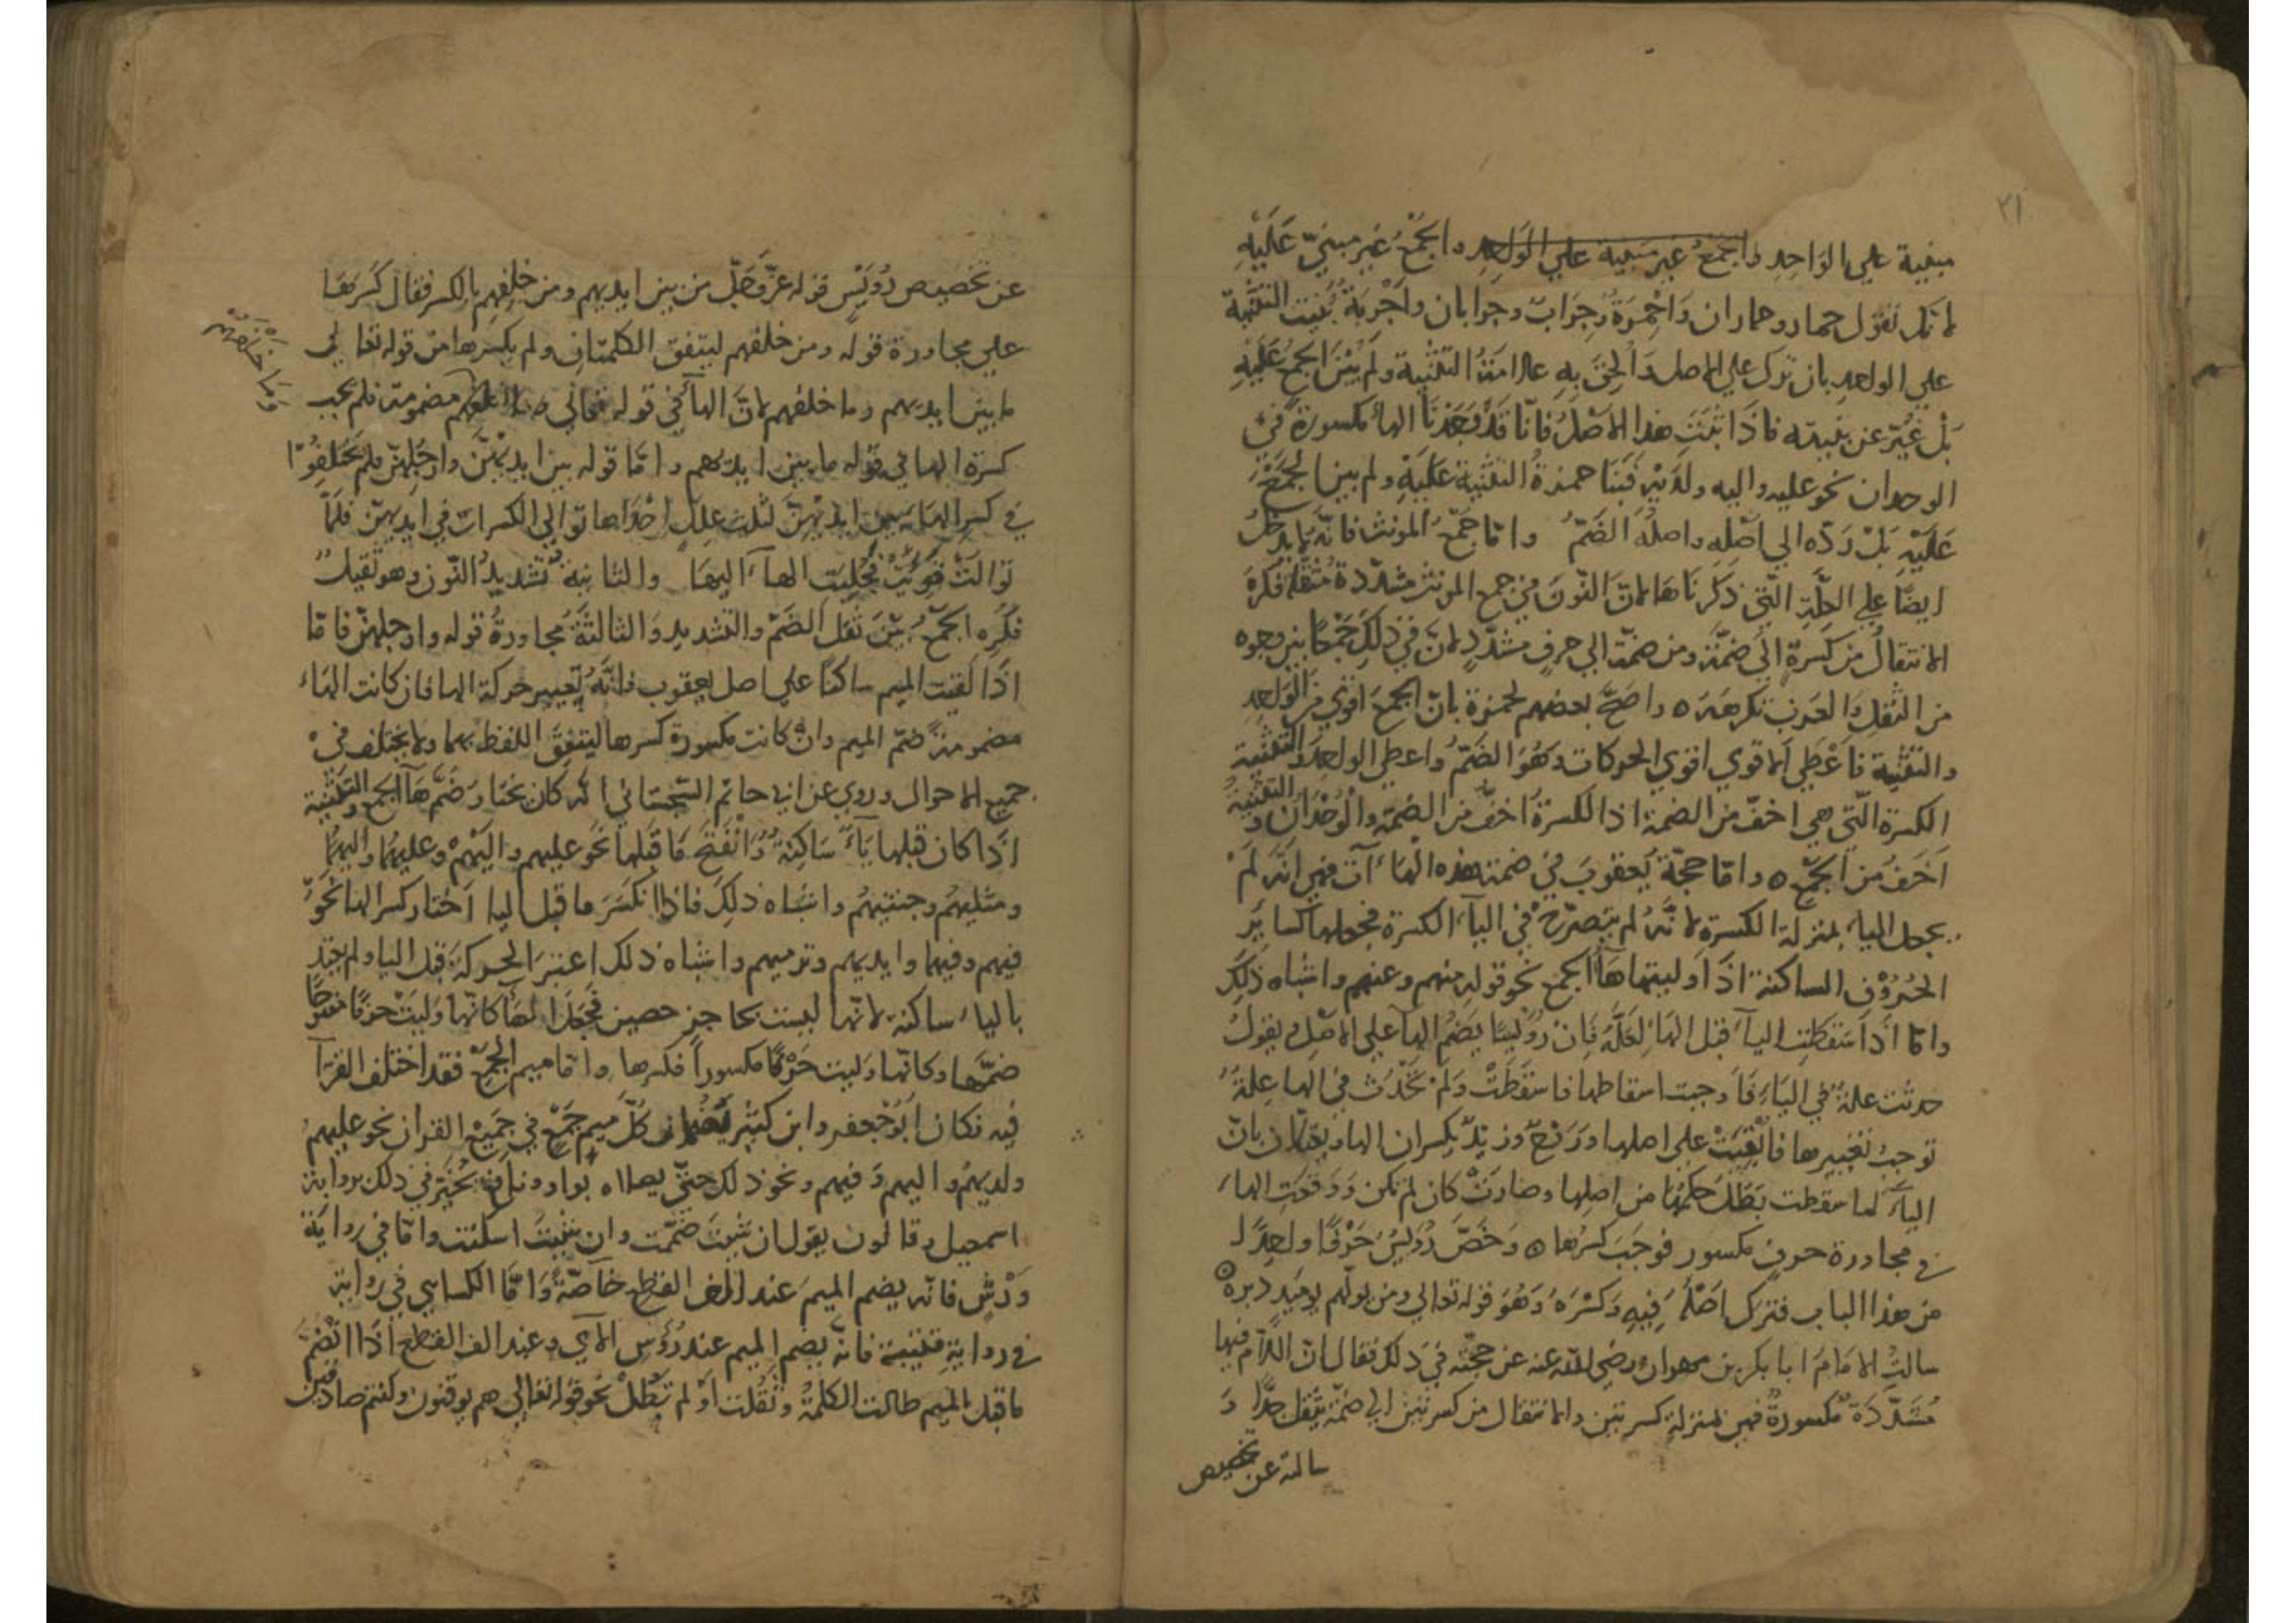 ٢١
مبنية علي الواحِدِ والجمْعُ غير مبنية علي الوَاحِدِ والجَمْعُ غير مبنيّ عَلَيهِ
لانك تقول حمار وحماران وَاَحْمِرَةٌ وجِرَابٌ وجرابان واَجْرِبَةٌ بُنيت التثنية
علي الواحد بان ترك علي الاصل وَاُلحِقَ بِهِ علامَةُ التثنية ولَمْ يُبْنَ الجمعُ عَلَيهِ
بَلْ غُيِّرَ عن بنيته فاذَا ثبَتَ هذا الاَصْلُ فانّا قَدْ وَجَدْنَا الهاء مكسورةً في
الوحدان نحو عليه واليه ولدَيْهِ فَبَنَا حمزةُ التثنية عَلَيهِ ولم يبن الجَمْعَ
عَلَيْهِ بَلْ رَدّه الي اَصْلِه واصلُهُ الضَمُّ وامّا جَمْعُ المونث فانّه يدخل
ايضًا علي العِلَّةِ الّتي ذكَرْنَاهَا لانّ النّونَ في جمع المونث مشدّدة مثقلة فكره
الانتقالُ من كسرةٍ الي ضمّةٍ ومن ضمّة الي حرفٍ مشدّدٍ لانّ في ذلِكَ جَمْعًا بين وجوه
من الثقلِ والعَرَبُ تكرهه ٥ واحتجّ بعضهم لحمزة بانّ الجمعَ اقوي من الوَاحِدِ
والتثنية فاَعْطي الاقوي اقوي الحركات وَهُوَ الضَمُّ واعطي الواحِدَ والتثنية
الكسرة الّتي هي اخفّ من الضمة اذ الكسرةُ اخفُّ من الضمّة والْوُحْدَانُ والتثنيةُ
اَخَفُّ مِنَ الجَمْعِ ٥ وامّا حجّة يَعقوبَ في ضمة هذه الهاءآت فهي اَنّهُ لَمْ
يجعل الياء بمنزلة الكسرة لانَّهُ لم يتصرّح في اليآء الكسرة فجعلها كسايِرِ
الحُرُوْفِ الساكنة اذَا وليتها هَآء الجمع نحو قوله منهم وعنهم واشباه ذلِكَ
وامّا اذَا سَقَطَتِ اليآء قبل الهَاء لِعِلَّةٍ فَان رُوَيْسًا يَضُمُّ الهآ علي الاصْلِ ويقولُ
حدثت علةٌ في اليَآءِ فَاَوجبت اسقاطها فاسْقَطَتْ ولَمْ تَحْدُث في الها عِلةٌ
توجبُ تغييرها فاُبْقِيَتْ علي اصلها وَرَوْحٌ وزيدٌ يكسران الها ويقولان بانّ
اليآءَ لما سقطت بَطَلَ حكمُهَا من اصلها وصارَتْ كان لم تكن ووقعتِ الهاء
في مجاورة حرفٍ مكسور فوجَبَ كسْرُها ٥ وَخَصَّ رُوَيْسٌ حَرْفًا واحِدًا
من هذا الباب فترك اَصْلَهُ فِيهِ وَكَسَرَهُ وَهُوَ قوله تعالي ومن يولّهم يومَيذٍ دبره ٥
سالتُ الاِمَامَ ابا بكر بن مهران رضي الله عنه عن حجّته في ذلك فقال لانّ اللاّم فيها
مُشَدَّدَةٌ مكسورةٌ فهي بمنزلة كسرتين والانتقال من كسرتين الي ضمّة يثقل جدًّا و
سالته عن تخصيص
عن تخصيص رُوَيْسٍ قوله عزَّ وَجَلّ من بين ايديهم ومن خلفِهِم بالكسر فقال كَسَرَهَا
علي مجاورة قوله ومن خلفهم ليتفق الكلمتانِ ولم يكسرها من قوله تعالي
ما بين ايديهم وما خلفهم لانّ الهآء في قوله تعالي وما خلفَهُم مضمومة فلم يجب
كسرة الها في قوله ما بين ايديهم وامّا قوله بين ايديْهنَّ وارجُلِهِنّ فلم يختلِفُوْا
في كسرِ الهاء من ايدِيْهنَّ لثلث عللٍ احْدَاها توالي الكسرات في ايديهنّ فلمّا
توالتْ قويتْ فجُلِبَت الهآء اليها والثانيةُ تشديدُ النّون وهو ثقيلٌ
فكُره الجمْعُ بَيْنَ ثقل الضَمّ والتشديد وَالثالثَةُ مجاورةُ قوله وارجلهنّ فامّا
اذَا لقيت الميم ساكنًا علي اصل يعقوب فانَّهُ يَعْتبِر حركة الها فان كانت الهاء
مضمومةً ضَمّ الميم وانْ كانت مكسورة كسرها ليتفِقَ اللفظ بهما ولا يختلف في
جميع الاحوال وروي عن ابي حاتم السّجستاني انّه كان يختار ضَمّ هَآء الجمع والتثنية
اذَا كان قبلها يَآءٌ سَاكِنةٌ وانْفَتَحَ مَا قبلها نحو عليهم واليْهُمْ وعليهُمَا واليهُمَا
ومثليهُم وجنتيهُم واشباه ذلِكَ فاذا انكَسَرَ ما قبل اليا اختار كسر الها نحوُ
فيهم وفيهما وايديهم وترميهم واشباه ذلك اعتبرَ الحركةَ قبل اليا ولم يعتد
باليا ساكنة لانّها ليست بحاجزٍ حصين فجَعَلَ الهآء كانّها وليَتْ حرفًا مفتوحًا
ضمَّها وكانّها وليت حَرْفًا مكسوراً فكسرها وامّا ميم الجَمْعِ فقد اختلف القرآ
فيه فكان ابُو جعفر وابن كثيْر يَضُمّان كُلَّ ميم جَمْعٍ في جَميعِ القران نحو عليهمُ
ولديهُمُ واليهم وَفيهم ونحو ذلك حتّي يصلاه بواو ونافع يُخيّر في ذلك برواية
اسمعيل وقالون يقول ان شيتَ ضَمَمت وان شيتَ اسكنت وامّا في روايَة
وَرْشٍ فانّه يضم الميمَ عند الف القطع خآصّةً وَامّا الكسايي في رواية
في رواية قتيبة فانّه يضم الميم عند رُؤُسِ الآي وعند الف القطع اذَا انْضَمَّ
ما قبل الميم طالت الكلمةُ وثقُلت اَوْ لم تَطُلْ نحو قوله تعالي هم يوقنون وكنتم صادقين